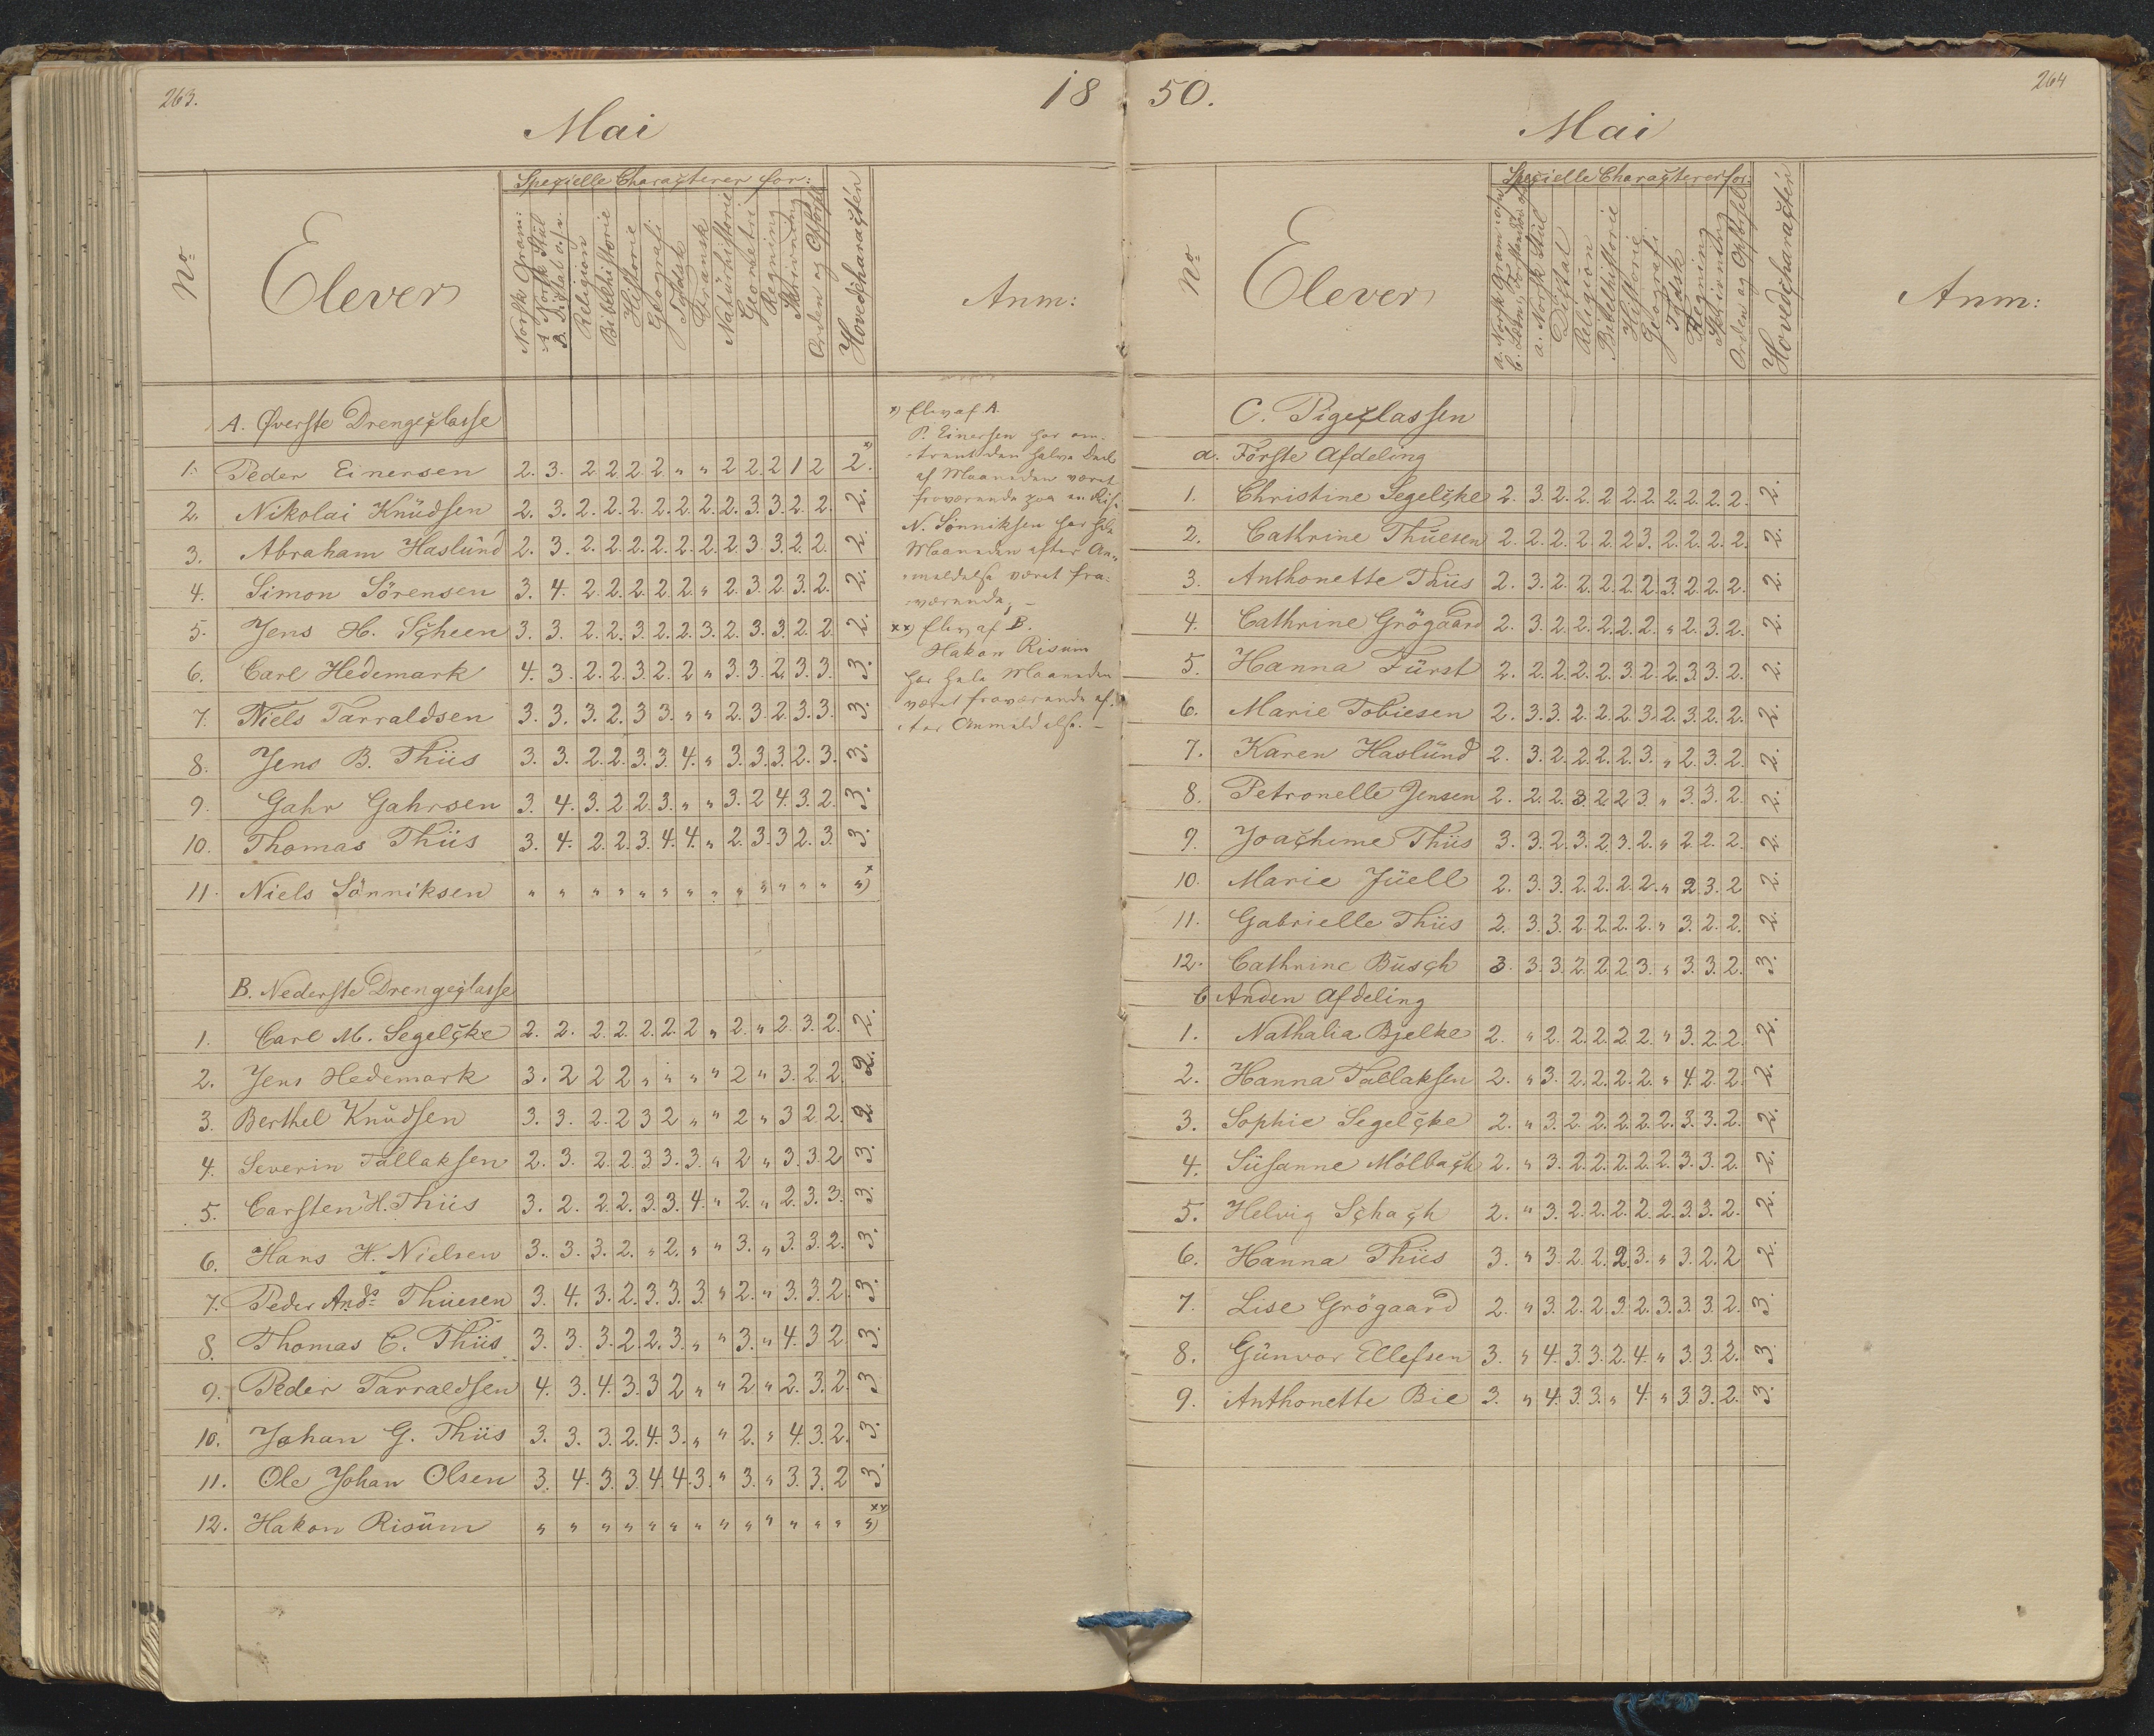 263.
18
Mai
No
Elever
Specielle Characterer for:
Norsk Gram:
A Norsk Stiil
B. Diktat o.s.v.
Religion
Bibelhistorie
Historie
Geografi
Tydsk
Fransk
Naturhistorie
Geometri
Regning
Skrivning
Orden og Opførsel
Hovedcharacteren
Anm:
A. Øverste Drengeclasse
1. Peder Einersen 2. 3. 2 2 2. 2 " " 2 2. 2 1 2 2. x)
2. Nikolai Knudsen 2. 3. 2. 2. 2. 2. 2. 2. 2. 3. 3. 2. 2. 2.
3. Abraham Haslund 2. 3. 2. 2. 2. 2. 2. 2. 2. 3. 3. 2. 2. 2.
4. Simon Sörensen 3. 4. 2. 2. 2. 2. 2. " 2. 3. 2. 3. 2. 2.
5. Jens H. Scheen 3. 3. 2. 2. 3. 2. 2. 3. 2. 3. 3. 2. 2. 2.
6. Carl Hedemark 4. 3. 2. 2. 3. 2. 2. " 3. 3. 2. 3. 3. 3.
7. Niels Tarraldsen 3. 3. 3. 2. 3 3. " " 2. 3. 2. 3. 3. 3.
8. Jens B. Thiis 3. 3. 2. 2. 3. 3. 4. " 3. 3. 3. 2. 3. 3.
9. Gahr Gahrsen 3. 4. 3. 2. 2. 3. " " 3. 2 4. 3. 2. 3.
10. Thomas Thiis 3. 4. 2. 2. 3. 4. 4. " 2. 3. 3 2. 3. 3.
11. Niels Sönniksen " " " " " " " " " " " " " " x)
x) Elev af A.
P. Einersen har om-
trent den halve Deel
af Maaneden været
fraværende paa en Reise
N. Sönniksen har hele
Maaneden efter An-
meldelse været fra-
værende; –
xx) Elev af B.
Hakon Risum
har hele Maaneden
været fraværende ef-
ter Anmeldelse. –
B. Nederste Drengeclasse
1. Carl M. Segelcke 2. 2. 2. 2. 2. 2. 2 " 2. " 2. 3. 2. 2.
2. Jens Hedemark 3. 2 2 2 " " " " 2 " 3. 2. 2. 2.
3. Berthel Knudsen 3. 3. 2. 2 3 2 " " 2 " 3 2 2. 2.
4. Severin Tallaksen 2. 3. 2. 2. 3 3. 3. " 2 " 3. 3. 2 3.
5. Carsten H. Thiis 3. 2. 2. 2. 3. 3. 4. " 2. " 2. 3. 3. 3.
6. Hans H. Nielsen 3. 3. 3. 2. " 2. " " 3. " 3. 3. 2. 3.
7. Peder Ands Thuesen 3. 4. 3. 2. 3. 3. 3. " 2. " 3. 3. 2. 3.
8. Thomas C. Thiis 3. 3. 3. 2. 2. 3. " " 3. " 4. 3 2. 3.
9. Peder Tarraldsen 4. 3. 4. 3. 3 2 " " 2 " 2. 3. 2. 3
10. Johan G. Thiis 3. 3. 3. 2. 4. 3. " " 2. " 4. 3. 2. 3.
11. Ole Johan Olsen 3. 4. 3. 3. 4. 4. 3. " 3. " 3. 3. 2 3.
12. Hakon Risum " " " " " " " " " " " " " " xx)
50.
264
Mai
No
Elever
Specielle Characterer for:
a. Norsk Gram: o.s.v.
a. Norsk Stiil
Digtat
Religion
Bibelhistorie
Historie
Geografi
Tydsk
Regning
Skrivning
Orden og Opførsel
Hovedcharacteren
Anm:
C. Pigeclassen
a. Förste Afdeling
1. Christine Segelcke 2. 3. 2. 2. 2. 2. 2. 2. 2. 2. 2. 2.
2. Cathrine Thuesen 2. 2. 2. 2. 2. 2 3. 2. 2. 2. 2. 2.
3. Anthonette Thiis 2. 3. 2. 2. 2. 2. 2. 3. 2. 2. 2. 2.
4. Cathrine Grögaard 2. 3. 2. 2. 2. 2. 2. " 2. 3. 2. 2.
5. Hanna Fürst 2. 2. 2. 2. 2. 3. 2. 2. 3. 3. 2. 2.
6. Marie Tobiesen 2. 3. 3. 2. 2. 2. 3. 2. 3. 2. 2. 2.
7. Karen Haslund 2. 3. 2. 2. 2. 2. 3. " 2. 3. 2. 2.
8. Petronelle Jensen 2. 2. 2. 3. 2. 2 3. " 3. 3. 2. 2.
9. Joachime Thiis 3. 3. 2. 3. 2. 3. 2. " 2. 2. 2. 2.
10. Marie Jüell 2. 3. 3. 2. 2. 2. 2. " 2 3. 2 2.
11. Gabrielle Thiis 2. 3. 3. 2. 2. 2. 2. " 3. 2. 2. 2.
12. Cathrine Busch 3. 3. 3. 2. 2. 2 3. " 3. 3. 2. 3.
b Anden Afdeling
1. Nathalia Bjelke 2. " 2. 2. 2. 2. 2. " 3. 2. 2. 2.
2. Hanna Tallaksen 2. " 3. 2. 2. 2. 2. " 4. 2. 2. 2.
3. Sophie Segelcke 2. " 3. 2. 2. 2. 2. 2. 3. 3. 2. 2.
4. Susanne Mölbach 2. " 3. 2. 2. 2. 2. 2. 3. 3. 2. 2.
5. Helvig Schach 2. " 3. 2. 2. 2. 2. 2. 3. 3. 2. 2.
6. Hanna Thiis 3. " 3. 2. 2. 2. 3. " 3. 2. 2 2.
7. Lise Grögaard 2. " 3. 2. 2. 3. 2. 3. 3. 3. 2. 3.
8. Gunvor Ellefsen 3. " 4. 3. 3. 2. 4. " 3. 3. 2. 3.
9. Anthonette Bie 3. " 4. 3. 3. " 4. " 3. 3. 2. 3.